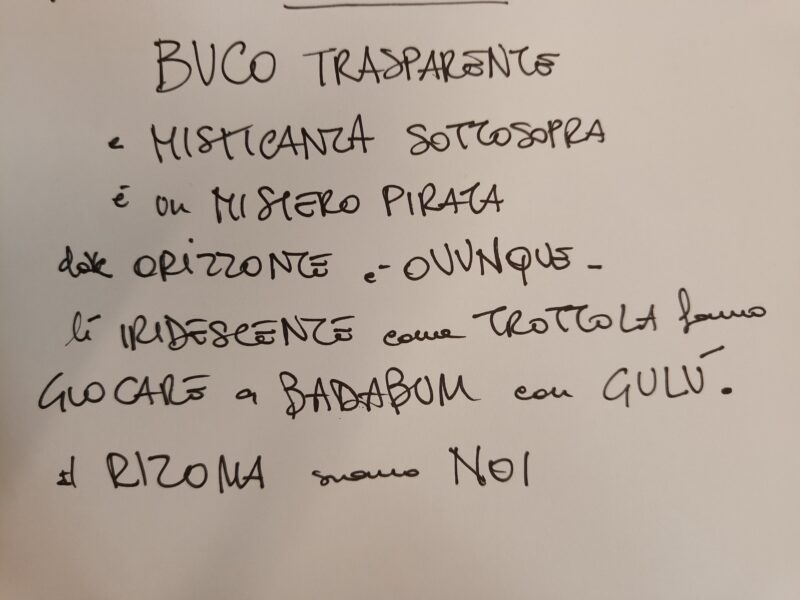 BUCO TRASPARENTE
e MISTICANZA SOTTOSOPRA
é un MISTERO PIRATA
dove ORIZZONTE e' OVUNQUE -
lí IRIDESCENTE come TROTTOLA fanno
GIOCARE a BADABUM con GULÚ.
il RIZOMA siamo NOI